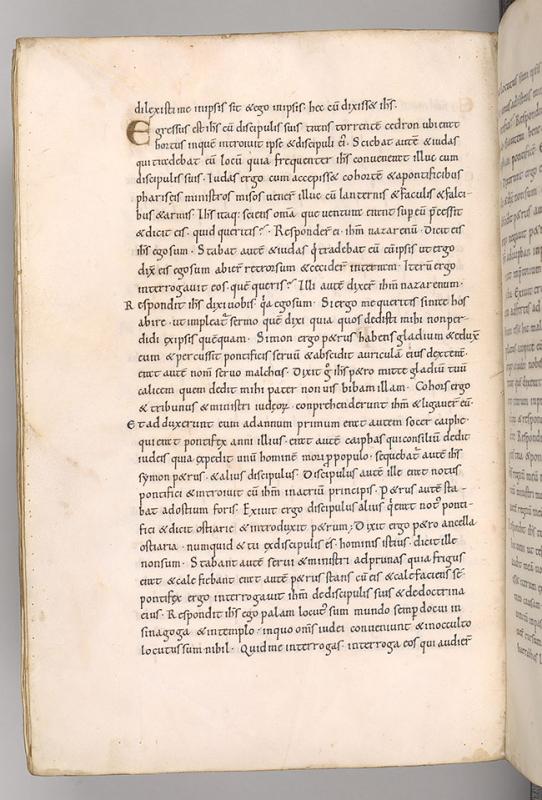 dilexisti me inipsis sit & ego inipsis. hec cū dixiss& ihs.
Egressus est ihs cū discipulis suis trans torrentē cedron ubi erat
hortus inquē introiuit ipse & discipuli ei᾽. Sciebat autē & iudas
qui tradebat eū locū quia frequenter ihs conuenerat illuc cum
discipulis suis. Iudas ergo cum accepiss& cohortē & apontificibus
phariseis ministros misos uener̄ illuc cū lanternis & faculis & falci-
bus & armis. Ihs itaq; sciens om̄a que uentura erant sup eū p̄cessit
& dicit eis. quid queritis? Responder̄ ei. ihm̄ nazarenū. Dicit eis
ihs egosum. Stabat autē & iudas q́ tradebat eū cū ipsis ut ergo
dix̄ eis egosum abier̄ retrorsum & cecider̄ interram. Iterū ergo
interrogauit eos. quē queris? Illi autē dixer̄ ihm̄ nazarenum.
Respondit ihs dixi uobis. q́a egosum. Si ergo me queritis sinite hos
abire. ut impleat᾽ sermo quē dixi quia quos dedisti mihi non per-
didi exipsis quēquam. Simon ergo p&rus habens gladium & edux̄
eum & percussit pontificis seruū & abscidit auriculā eius dexterā.
erat autē nom̄ seruo malchus. Dixit g᾽ ihs p&ro mitte gladiū tuū
calicem quem dedit mihi pater non uis bibam illam. Cohors ergo
& tribunus & ministri iudeoꝝ. conprehenderunt ihm̄ & ligauer̄ eū.
Et adduxerunt eum adannam primum erat autem socer caiphe.
qui erat pontifex anni illius. erat autē caiphas qui consiliū dedit
iudeis quia expedit unū hominē mori ppopulo. sequebat᾽ autē ihs
symon p&rus. & alius discipulus. Discipulus autē ille erat notus
pontifici & introiuit cū ihm̄ inatriū principis. P&rus autē sta-
bat adostium foris. Exiuit ergo discipulus alius q́ erat not᾽ ponti-
fici & dicit ostiarie & introduxit p&rum. Dixit ergo p&ro ancella
ostiaria. numquid & tu exdiscipulis és. hominis istius. dicit ille
nonsum. Stabant autē serui & ministri adprunas quia frigus
erat & calefiebant erat autē p&rus stans cū eis & calefaciens sé.
pontifex ergo interrogauit ihm̄ dediscipulis suis & dedoctrina
eius. Respondit ihs ego palam locut᾽ sum mundo semp docui in
sinagoga & intemplo. inquo om̄s iudei conueniunt & inocculto
locutus sum nihil. Quid me interrogas. interroga eos qui audier̄